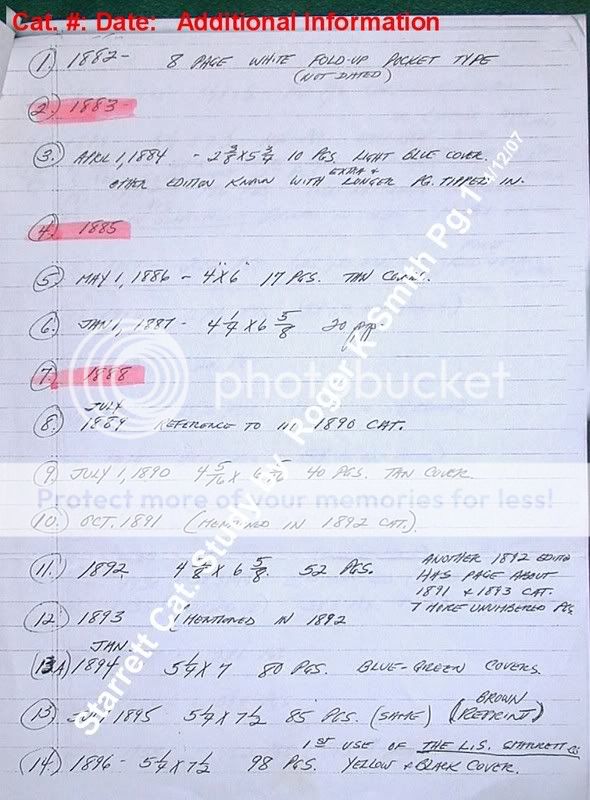 Cat. #: Date: Additional Information
1. 1882- 8 PAGE WHITE FOLD-UP POCKET TYPE
(NOT DATED)
2. 1883-
3. APRIL 1, 1884 - 2 3/8 X 5 3/4 10 PGS. LIGHT BLUE COVER.
OTHER EDITION KNOWN WITH EXTRA & LONGER PG. TIPPED IN.
4. 1885
5. MAY 1, 1886 - 4" X 6" 17 PGS. TAN
6. JAN 1, 1887 - 4 1/4 X 6 5/8 20 pp.
7. 1888
JULY
8. 1889 REFERENCE TO IN 1890 CAT.
9. JULY 1, 1890 4 5/16 X 6 40 PGS. TAN COVER
10. OCT. 1891 (MENTIONED IN 1892 CAT.)
11. 1892 4 5/8 X 6 5/8. 52 PGS.
ANOTHER 1892 EDITION
HAS PAGE ABOUT
1891 & 1893 CAT.
7 MORE UNUMBERED PGS.
12. 1893 (MENTIONED IN 1892
JAN.
13A) 1894 5 1/4 X 7 80 PGS. BLUE-GREEN COVERS.
13. 1895 5 1/4 X 7 1/2 85 PGS. (SAME) (BROWN REPRINT)
1ST USE OF THE L.S. STARRETT CO
14. 1896 - 5 1/4 X 7 1/2 98 PGS. YELLOW & BLACK COVER.
Starrett Cat. Study By Roger K Smith Pg. 1 /12/07
photobucket
Protect more of your memories for less!